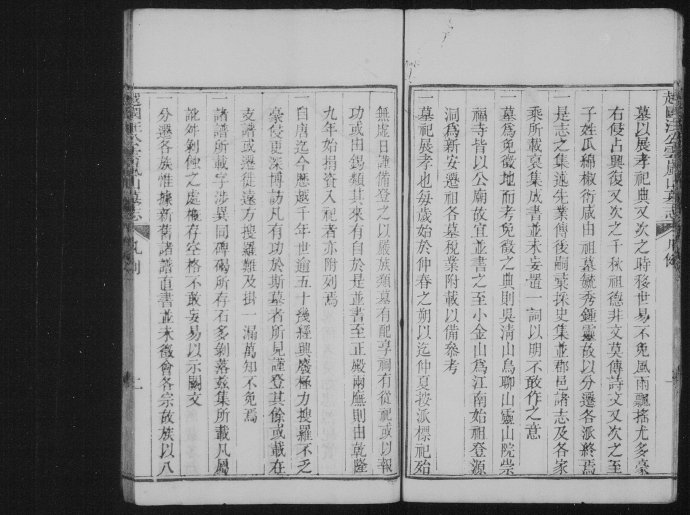 墓以展孝祀典又次之時移世易不免風雨飄搖尤多豪
右侵占興復又次之千秋祖德非文莫傳詩文又次之至
子姓瓜綿椒衍咸由祖墓毓秀鍾靈故以分遷各派終焉
一是志之集遠先業傳後嗣裒採史集並郡邑諸志及各家
乘所載裒集成書並未妄置一詞以明不敢作之意
一墓爲免徵地而考免徵之典則吳清山烏聊山靈山院崇
福寺皆以公廟故宜並書之至小金山爲江南始祖登源
洞爲新安遷祖各墓稅業附載以備參考
一墓祀展孝也每歲始於仲春之朔以迄仲夏按派標祀殆
無虛日謹備登之以嚴族類墓有配享祠有從祀或以報
功或由錫類其來有自於是並書至正殿兩廡則由乾隆
九年始捐資入祀者亦附列焉
一自唐迄今歷越千年世逾五十幾經興廢極力搜羅不乏
豪侵更深博訪凡有功於斯墓者所見謹登其餘或載在
支譜或遷徙遠方搜羅難及掛一漏萬知不免焉
一諸譜所載字涉異同碑碣所存石多剝落茲集所載凡屬
訛舛剝蝕之處槪存空格不敢妄易以示闕文
一分遷各族惟據新舊諸譜直書並未徵會各宗故族以八
越國汪公墓鳳山墓志
凡例
二